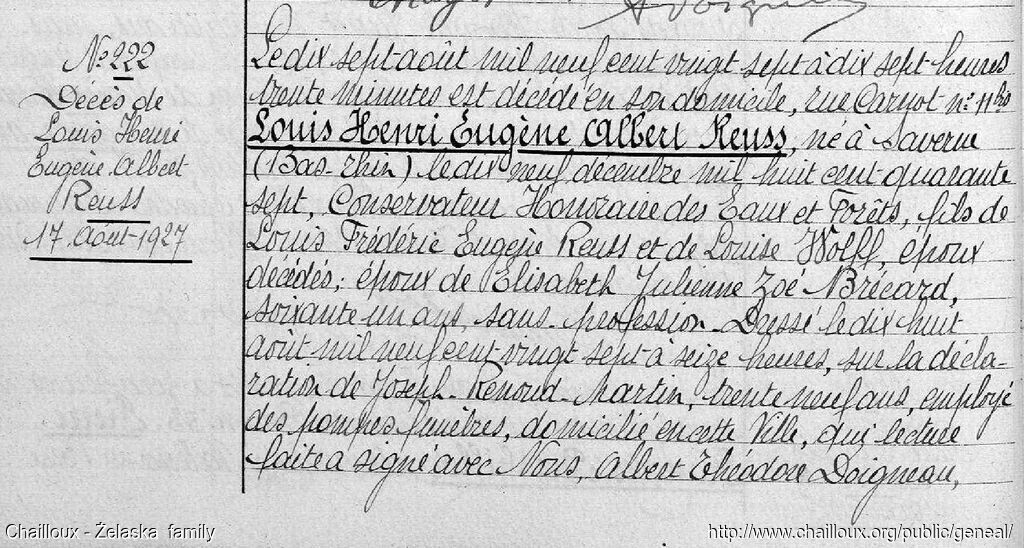 Nº 222
Décès de
Louis Henri
Eugène Albert
Reuss
17 Août-1927
Le dix sept août mil neuf cent vingt sept à dix sept heures
trente minutes est décédé en son domicile, rue Carnot nº 11 bis
Louis Henri Eugène Albert Reuss, né à Saverne
(Bas-Rhin) le dix neuf décembre mil huit cent quarante
sept, Conservateur Honoraire des Eaux et Forêts, fils de
Louis Frédéric Eugène Reuss et de Louise Wolff, époux
décédés; époux de Elisabeth Julienne Zoé Brécard,
soixante un ans, sans profession. Dressé le dix huit
août mil neuf cent vingt sept à seize heures, sur la décla-
ration de Joseph Renoud-Martin, trente neuf ans, employé
des pompes funèbres, domicilié en cette Ville, qui lecture
faite a signé avec Nous, Albert Théodore Doigneau,
Chailloux - Želaska family
http://www.chailloux.org/public/geneal/